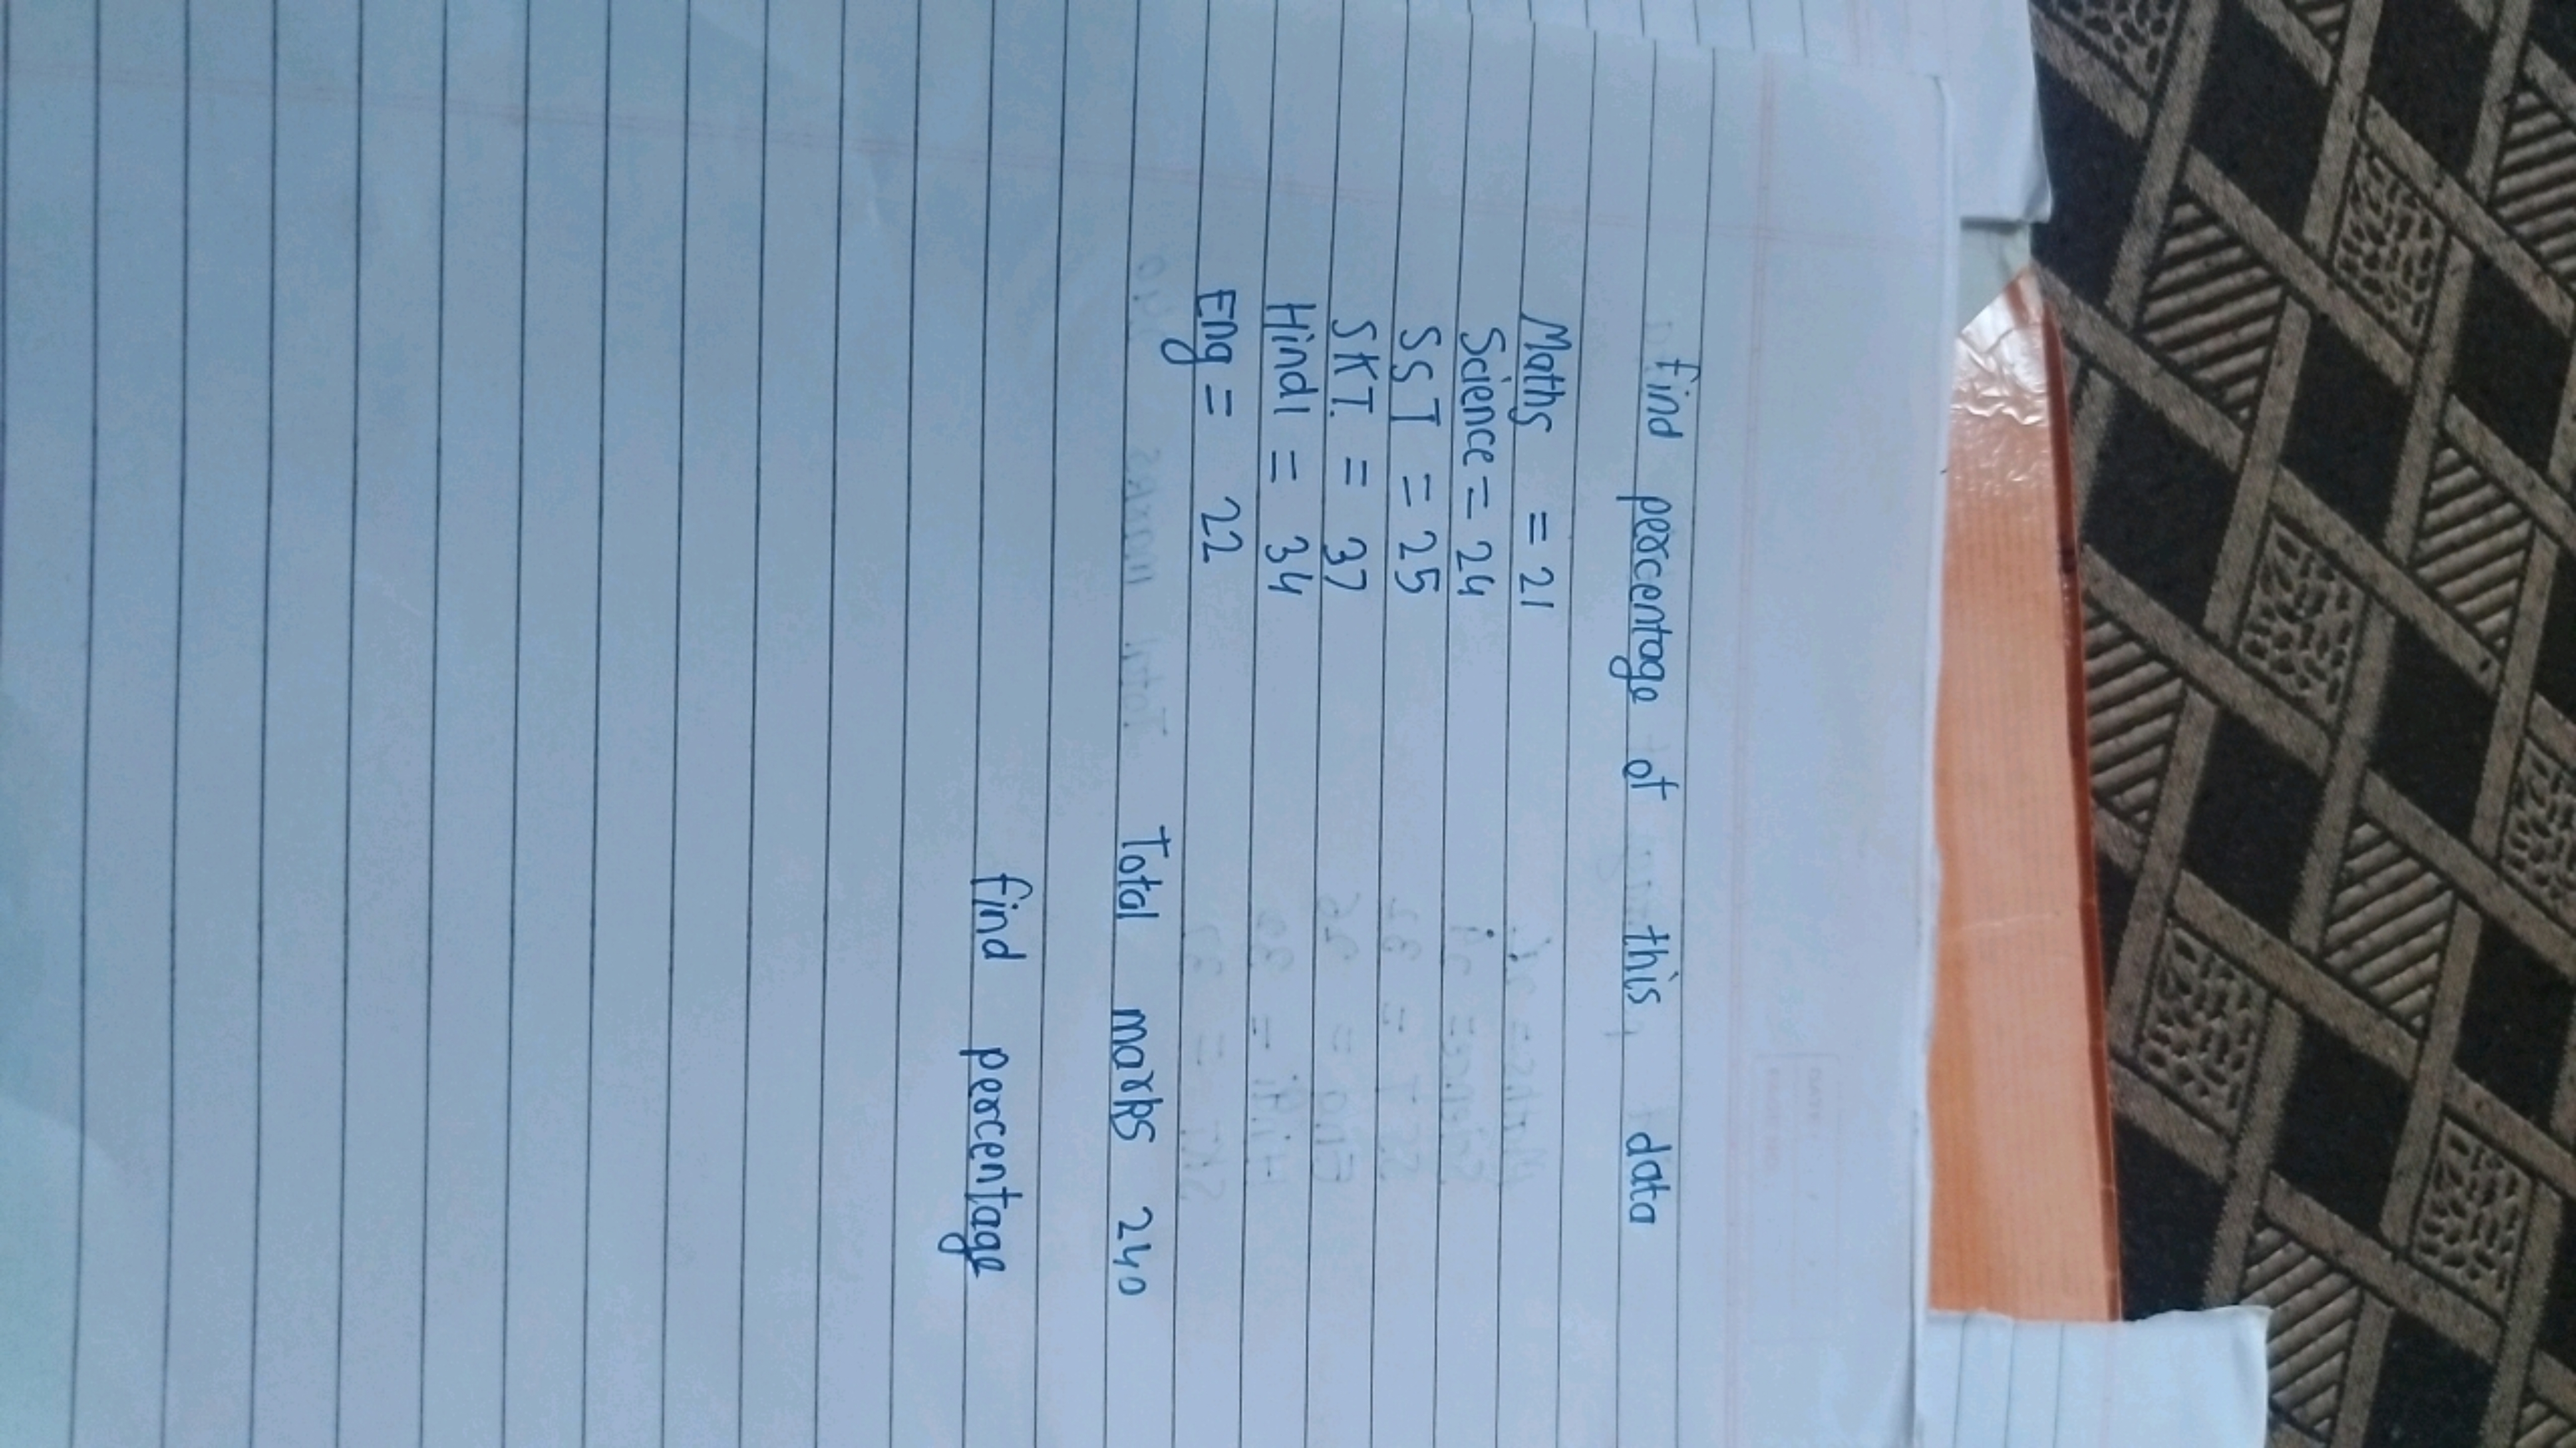 Find percentage of this data
Maths = 21
Science = 24
SST = 25
SKT. = 37
Hindi = 34
Eng = 22
Total marks 240
find percentage